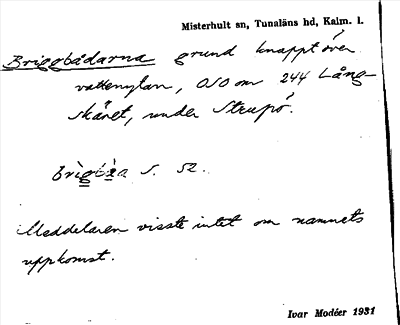 Misterhult sn, Tunaläns hd, Kalm. l.
Briggbådarna grund knappt över
vattenytan, OSO om 244 Lång-
skäret, under Strupö.
S. 52.
Meddelaren visste intet om namnets
uppkomst.
Ivar Modéer 1931